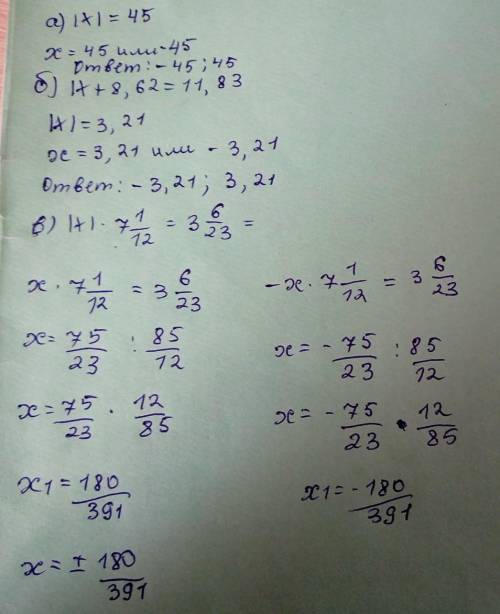 а) |x| = 45
x = 45 или -45
Ответ: - 45 ; 45
б) |x + 8, 62 = 11, 83
|x| = 3, 21
x = 3, 21 или - 3, 21
Ответ: - 3, 21 ; 3, 21
в) |x| · 7 1/12 = 3 6/23 =
x · 7 1/12 = 3 6/23
x = 75/23 : 85/12
x = 75/23 · 12/85
x1 = 180/391
x = ± 180/391
-x · 7 1/12 = 3 6/23
x = - 75/23 : 85/12
x = - 75/23 · 12/85
x1 = - 180/391